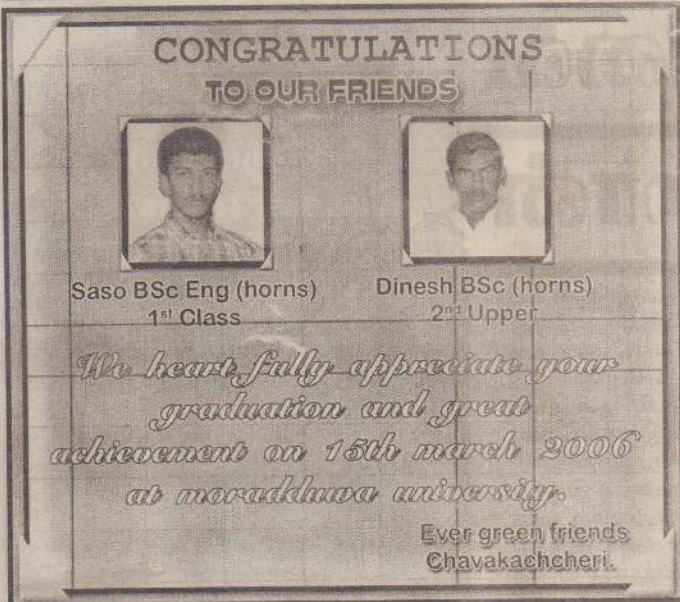 CONGRATULATIONS
TO OUR FRIENDS
Saso BSc Eng (horns)
1st Class
Dinesh BSc (horns)
2nd Upper
We heart fully appreciate your
graduation and great
achievement on 15th march 2006
at moradduwa university.
Ever green friends
Chavakachcheri.